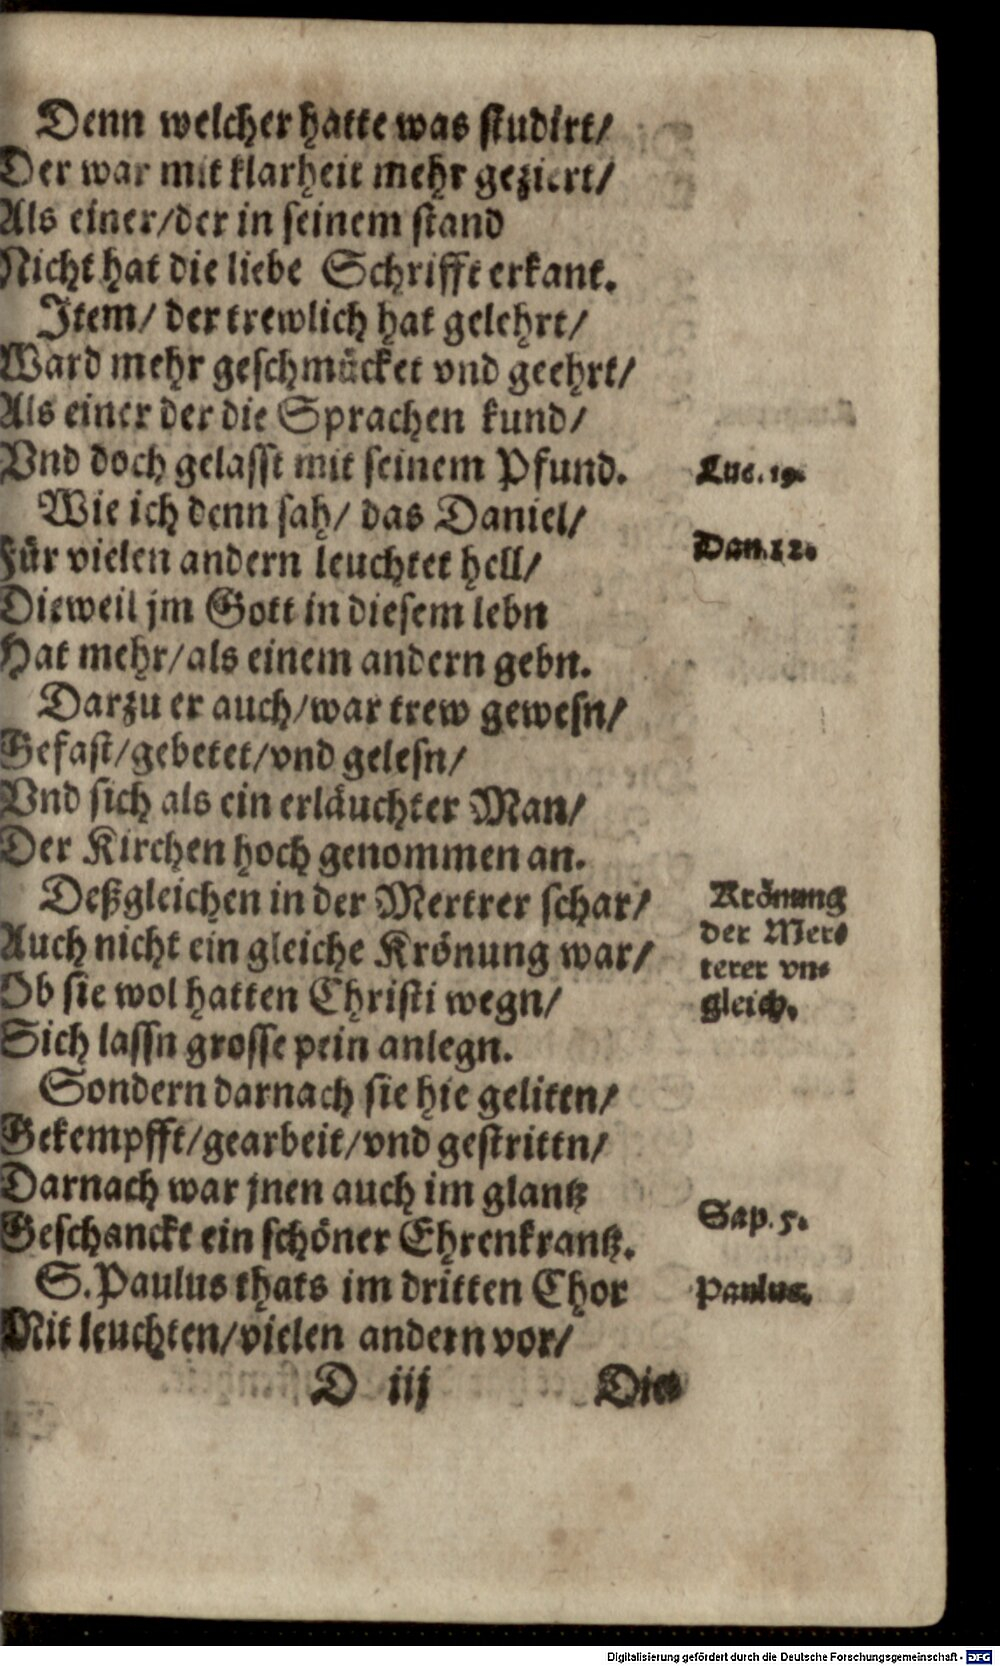 Denn welcher hatte was studirt/
Der war mit klarheit mehr geziert/
Als einer/der in seinem stand
Nicht hat die liebe Schrifft erkant.
Item/ der trewlich hat gelehrt/
Ward mehr geschmücket vnd geehrt/
Als einer der die Sprachen kund/
Vnd doch gelasst mit seinem Pfund.
Luc. 19.
Wie ich denn sah/ das Daniel/
Für vielen andern leuchtet hell/
Dan. 12.
Dieweil jm Gott in diesem lebn
Hat mehr/als einem andern gebn.
Darzu er auch/war trew gewesn/
Gefast/gebetet/vnd gelesn/
Vnd sich als ein erläuchter Man/
Der Kirchen hoch genommen an.
Deßgleichen in der Mertrer schar/
Auch nicht ein gleiche Krönung war/
Ob sie wol hatten Christi wegn/
Sich lassn grosse pein anlegn.
Krönung
der Mer-
terer vn-
gleich.
Sondern darnach sie hie geliten/
Gekempfft/gearbeit/vnd gestrittn/
Darnach war jnen auch im glantz
Geschanckt ein schöner Ehrenkrantz.
Sap. 5.
S. Paulus thats im dritten Chor
Paulus.
Mit leuchten/vielen andern vor/
D iij
Die-
Digitalisierung gefördert durch die Deutsche Forschungsgemeinschaft - DFG